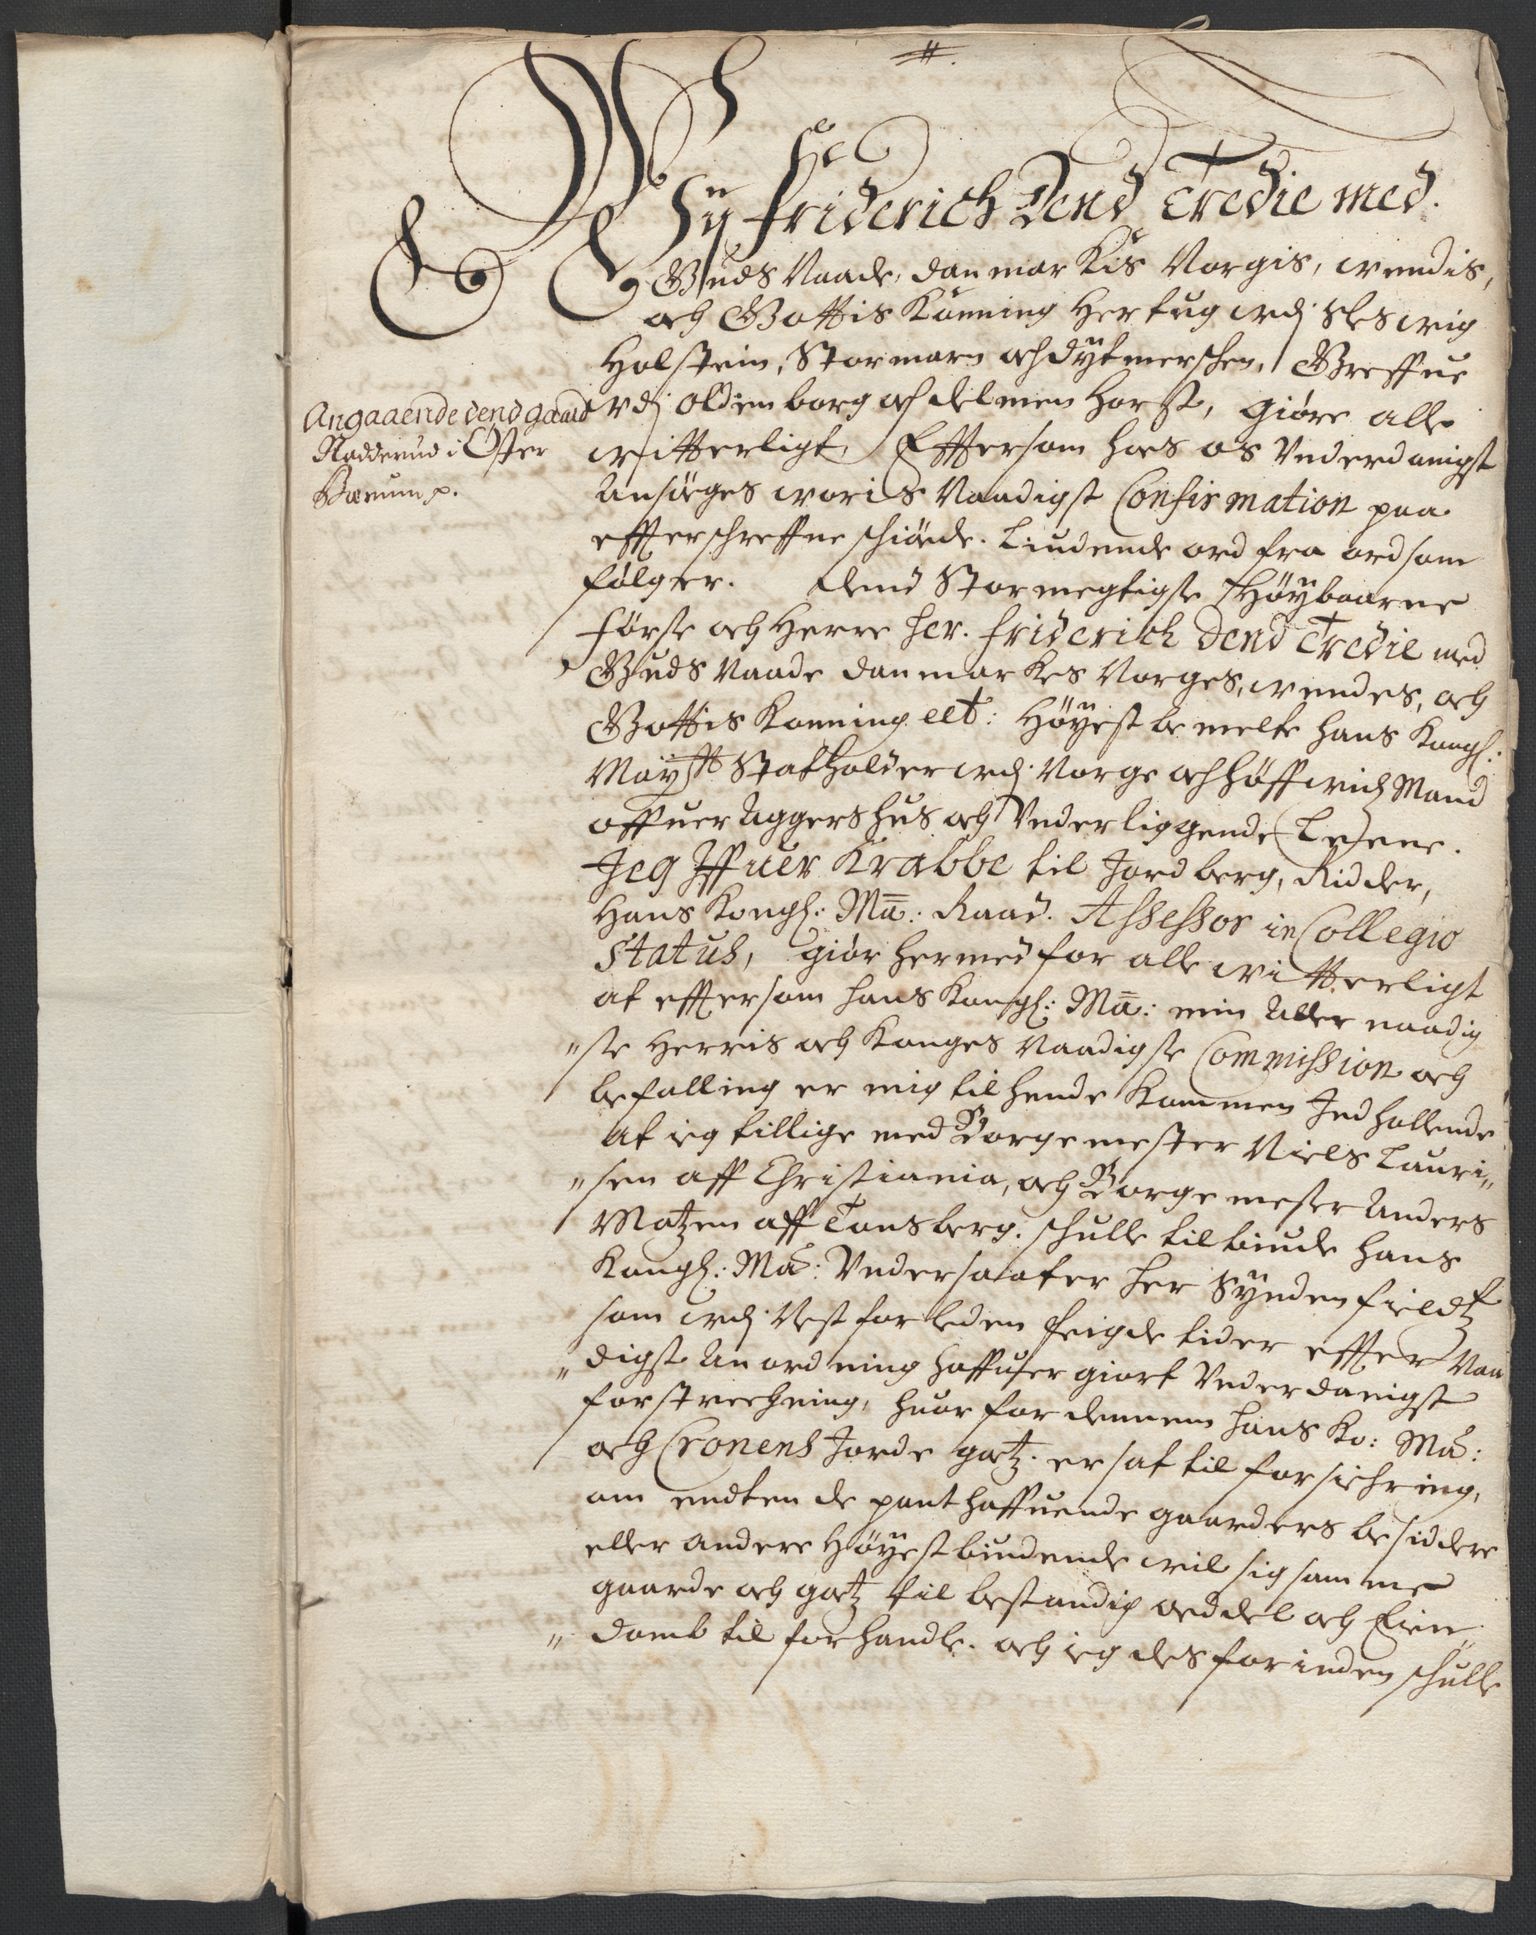 Wÿ Friderich Dend Tredie med
Guds Naade, danmarkis Norgis, wendis,
och Gottis Konning Hertug wdj Sleswig
Holstein, Stormarn och dytmerschen, Greffue
wdj Oldenborg och delmenhorst, giøre alle
Angaaende dend gaard
Nadderud i Øster
Bærum p.
witterligt, Effttersom hoes os Vnderdanigst
Ansøeges woris Naadigst Confirmation paa
effterschreffne schiøede. Liudende ord fra ord som
følger. dend Stormegtigste Høÿbaarne
Første och Herre Her. Friderich Dend Tredie med
Guds Naade danmarkes Norges, wendes, och
Gottis Konning ect: Høÿestbemelte Hans Kongl:
Maÿtt Statholder wdj Norge och høffwidzMand
offuer Aggershus och Vnderliggende Lehne.
Jeg Iffuer Krabbe til Jordberg, Ridder,
Hans Kongl: Ma: Raad. Assessor in Collegio
Status, giør hermed for alle witterligt
at efftersom hans Kongl: Ma: min Aller naadig
"ste Herris och Konges Naadigste Commission och
befalling er mig tilhende kommen Indhollende
at ieg tillige med Borgemester Niels Lauri"
"sen aff Christiania, och Borgemester Anders
Matzen aff Tonsberg. schulle tilbiude hans
Kongl: Ma: Vndersaater her Syndenfieldtz
som wdj Nestforleden feigde tider effter Naa
"digst Anordning haffuer giort Vnderdanigst
forstrechning, huorfor dennem hans Ko: Ma:
och Cronens Jordegotz er sat til forsichring,
om endten de panthaffuende gaarders besiddere
eller andere Høÿestbiudende wil sig samme
gaarde och gotz til bestandig oeddel och Eien
"domb til forhandle. och ieg des forinden schulle